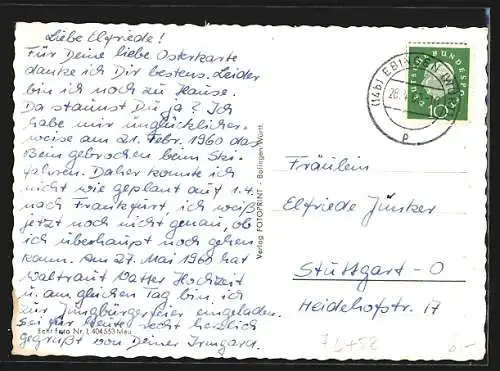 Liebe Elfriede!
Für Deine liebe Osterkarte
danke ich Dir bestens. Leider
bin ich noch zu Hause.
Da staunst Du ja? Ich
habe mir unglücklicher-
weise am 21. Febr. 1960 das
Bein gebrochen beim Ski-
fahren. Daher konnte ich
nicht wie geplant auf 1.4.
nach Frankfurt, ich weiß
jetzt noch nicht genau, ob
ich überhaupt noch gehen
kann. Am 27. Mai 1960 hat
Waltraut Watter Hochzeit
u. am gleichen Tag bin ich
zur Jungbürgerfeier eingeladen.
Sei für heute recht herzlich
gegrüßt von Deiner Irmgard.
Echt Foto Nr. L 404 553 Mau
Verlag FOTOPRINT - Balingen Württ.
(14b) EBINGEN
DEUTSCHE BUNDESPOST
10
Fräulein
Elfriede Junker
Stuttgart-O
Heidehofstr. 17